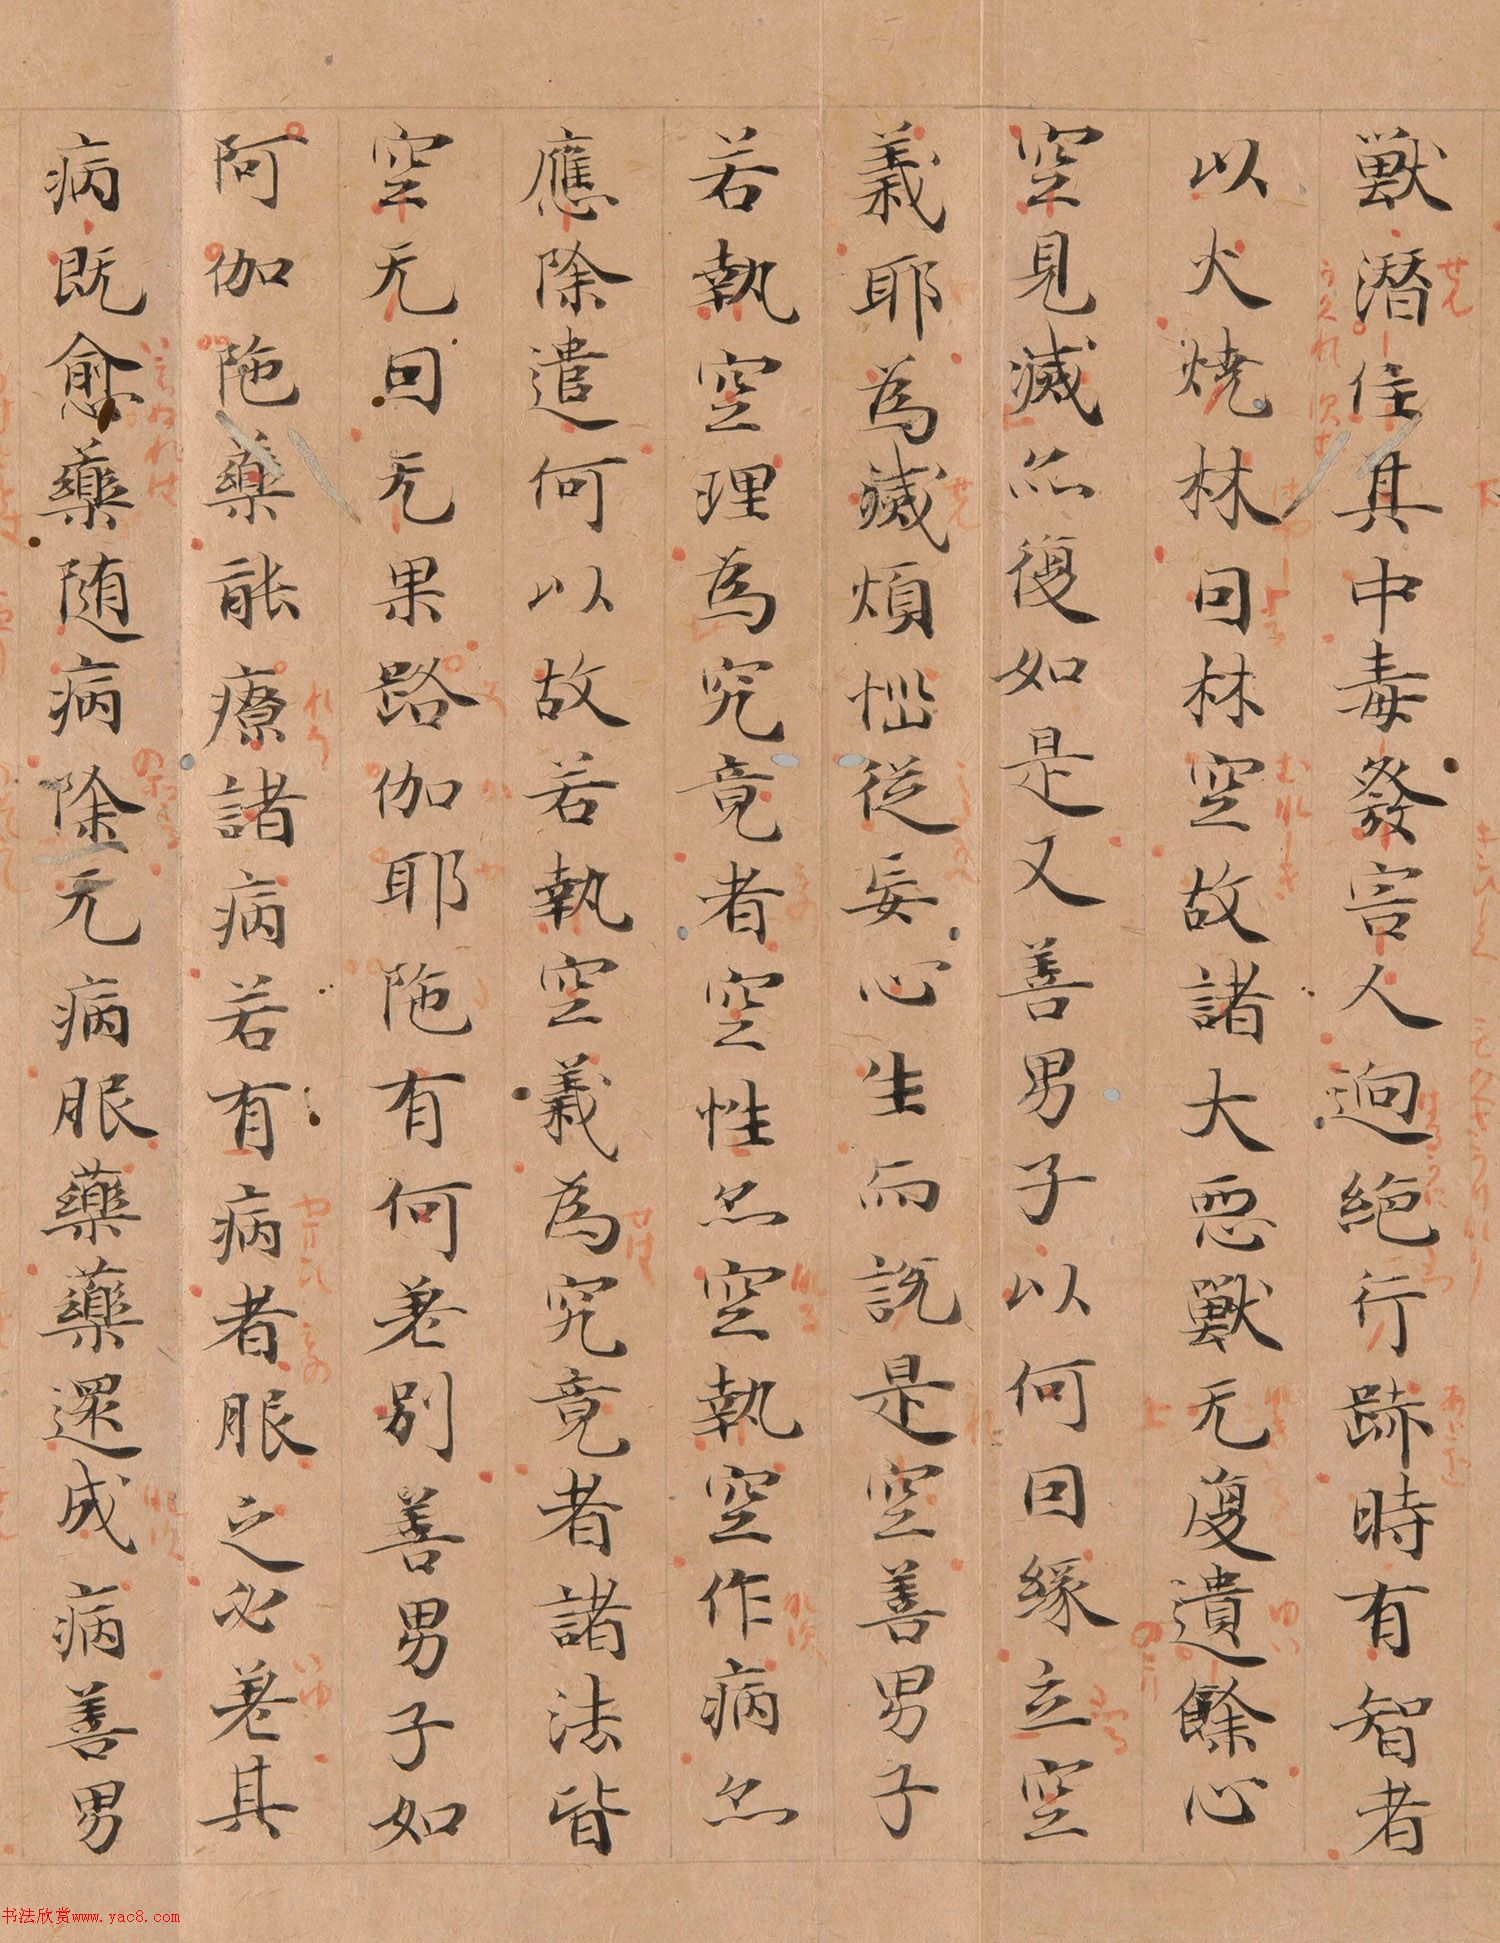 獸潛住其中毒發害人逈絶行跡時有智者
以火燒林因林空故諸大惡獸无復遺餘心
空見滅亦復如是又善男子以何因緣立空
義耶為滅煩惱從妄心生而說是空善男子
若執空理為究竟者空性亦空執空作病亦
應除遣何以故若執空義為究竟者諸法皆
空无因无果路伽耶陁有何差別善男子如
阿伽陁藥能療諸病若有病者服之必差其
病既愈藥随病除无病服藥藥還成病善男
书法欣赏www.yac8.com